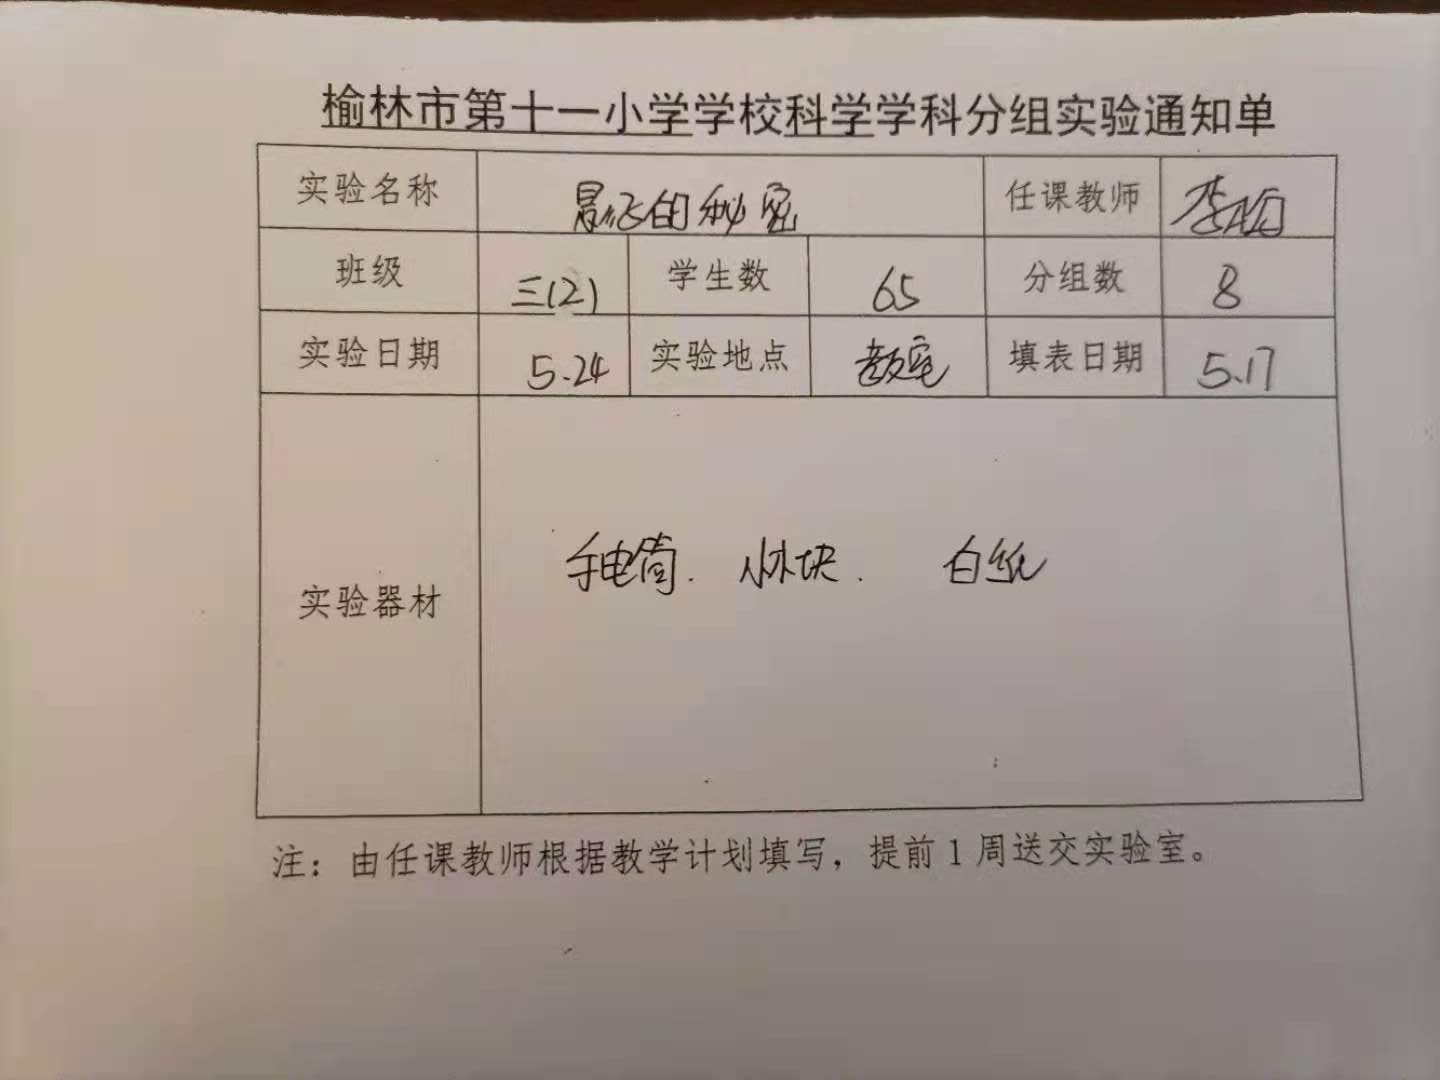 榆林市第十一小学学校科学学科分组实验通知单
实验名称 影子的秘密 任课教师 李
班级 三(2) 学生数 65 分组数 8
实验日期 5.24 实验地点 教室 填表日期 5.17
实验器材 手电筒. 小木块. 白纸
注：由任课教师根据教学计划填写，提前1周送交实验室。